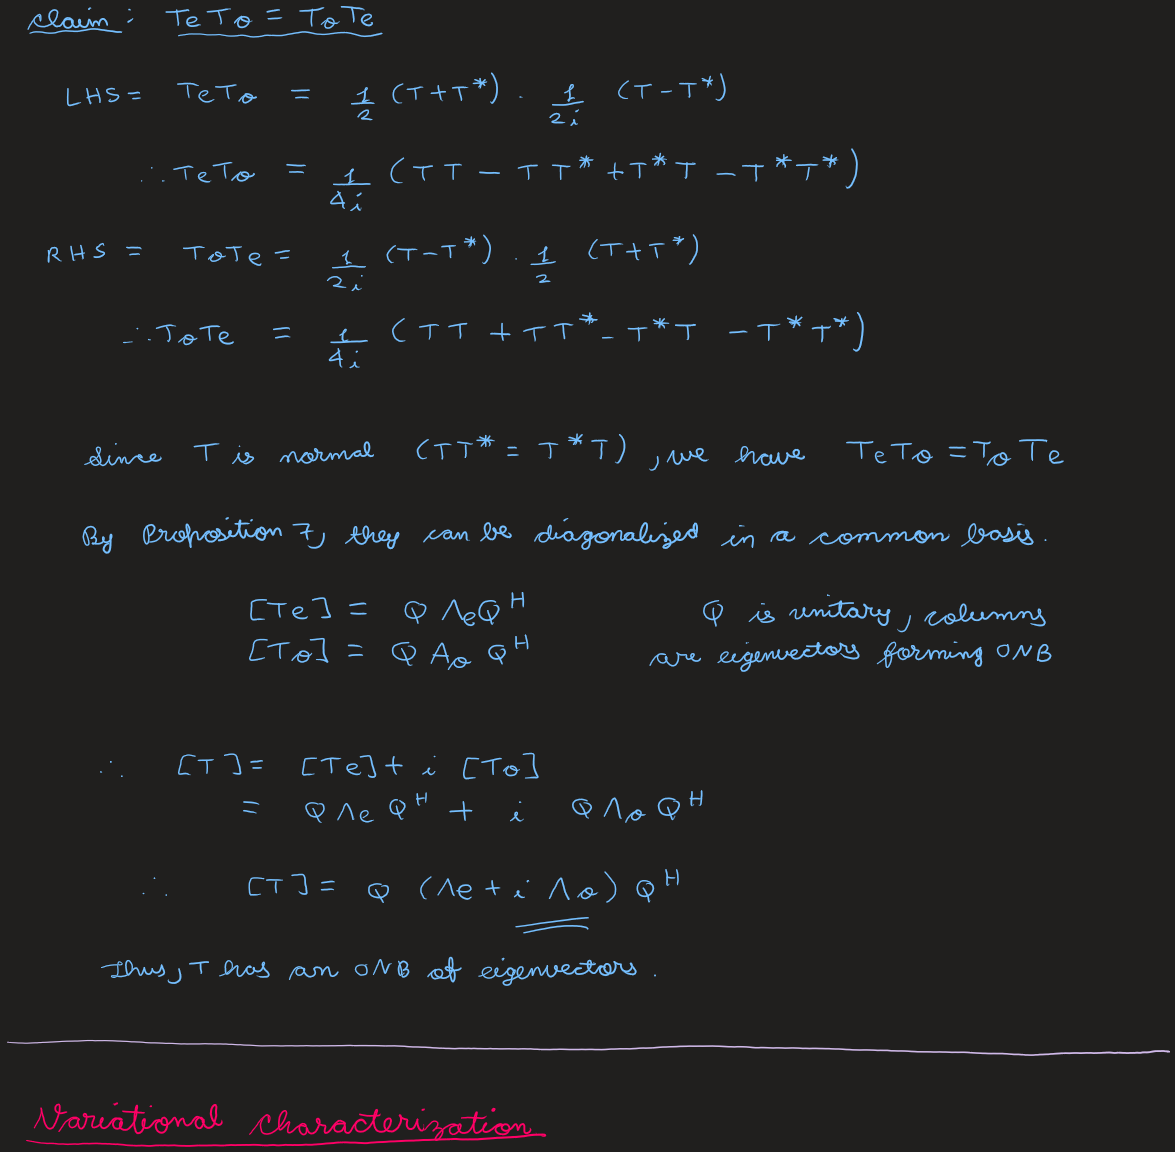 claim : TeTo = ToTe
LHS = TeTo = 1/2 (T + T*) . 1/2i (T - T*)
∴ TeTo = 1/4i (TT - TT* + T*T - T*T*)
RHS = ToTe = 1/2i (T - T*) . 1/2 (T + T*)
∴ ToTe = 1/4i (TT + TT* - T*T - T*T*)
Since T is normal (TT* = T*T), we have TeTo = ToTe
By Proposition 7, they can be diagonalized in a common basis.
[Te] = Q Λe Q^H Q is unitary, columns
[To] = Q Λo Q^H are eigenvectors forming ONB
∴ [T] = [Te] + i [To]
= Q Λe Q^H + i Q Λo Q^H
∴ [T] = Q (Λe + i Λo) Q^H
Thus, T has an ONB of eigenvectors.
Variational characterization